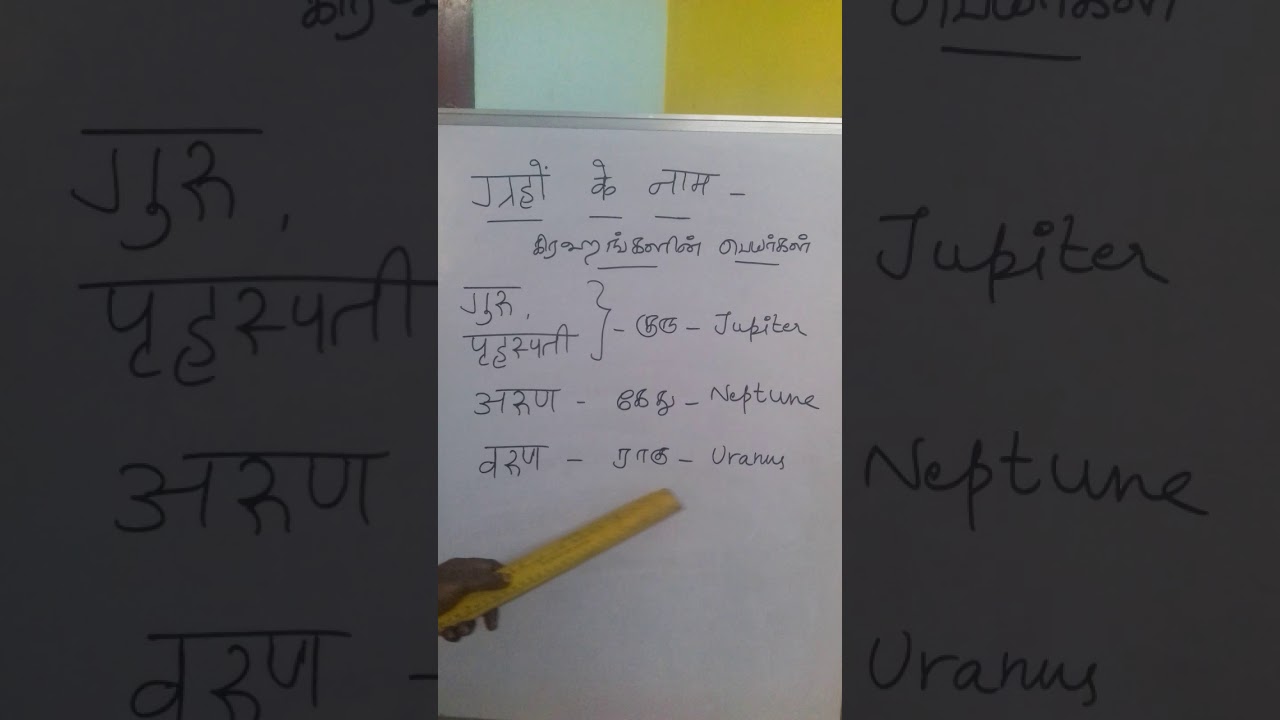 ग्रहों के नाम -
கிரஹங்களின் பெயர்கள்
गुरु,
पृहस्पती } - குரு - Jupiter
अरुण - கேது - Neptune
वरुण - ராகு - Uranus